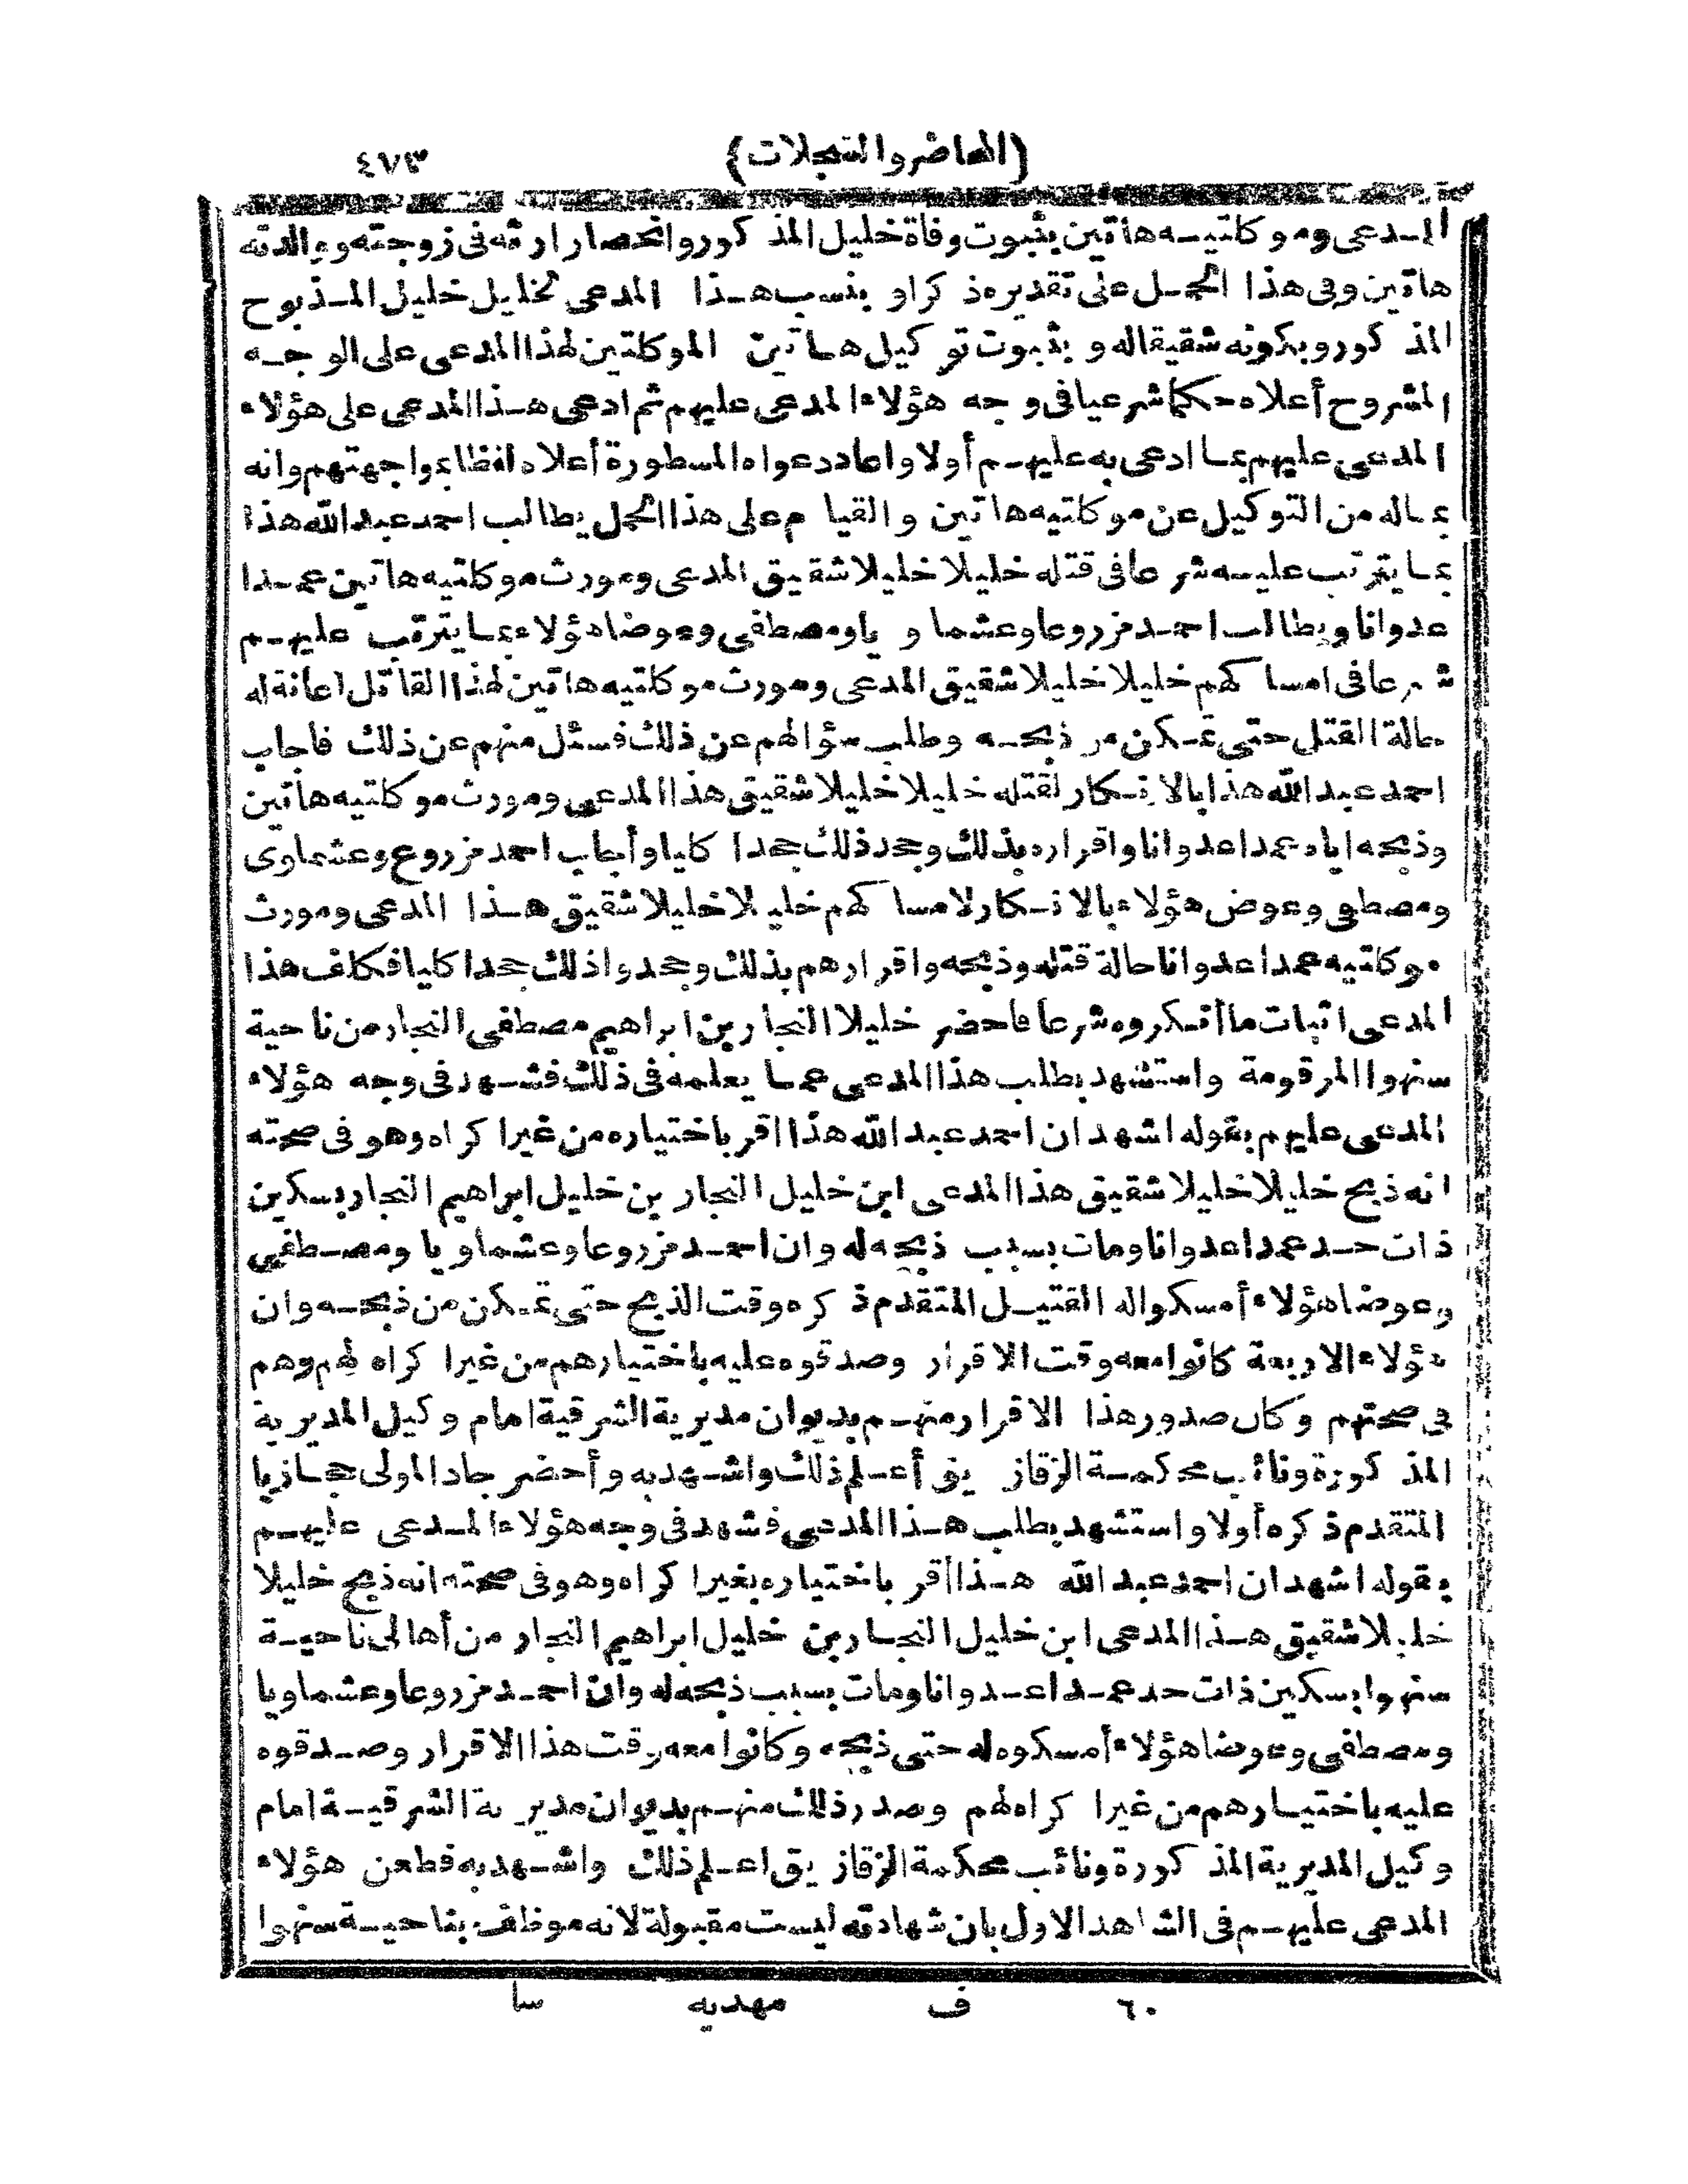 (المحاضر والسجلات) ٤٧٣
المدعى وموكلتيه هاتين بثبوت وفاة خليل المذكور وانحصار ارثه فى زوجته ووالدته
هاتين وفى هذا الحمل على تقديره ذكرا وبنسب هذا المدعى لخليل خليل المذبوح
المذكور وبكونه شقيقا له وبثبوت توكيل هاتين الموكلتين لهذا المدعى على الوجه
المشروح أعلاه حكما شرعيا فى وجه هؤلاء المدعى عليهم ثم ادعى هذا المدعى على هؤلاء
المدعى عليهم بما ادعى به عليهم أولا واعاد دعواه المسطورة أعلاه لفظا بمواجهتهم وانه
بماله من التوكيل عن موكلتيه هاتين والقيام على هذا الحمل يطالب احمد عبد الله هذا
بما يترتب عليه شرعا فى قتله خليلا خليلا شقيق المدعى ومورث موكلتيه هاتين عمدا
عدوانا ويطالب احمد مزروعا وعشماويا ومصطفى وعوضا هؤلاء بما يترتب عليهم
شرعا فى امساكهم خليلا خليلا شقيق المدعى ومورث موكلتيه هاتين لهذا القاتل اعانة له
حالة القتل حتى تمكن من ذبحه وطلب سؤالهم عن ذلك فسئل منهم عن ذلك فاجاب
احمد عبد الله هذا بالانكار لقتله خليلا خليلا شقيق هذا المدعى ومورث موكلتيه هاتين
وذبحه اياه عمدا عدوانا واقراره بذلك وجحد ذلك جحدا كليا وأجاب احمد مزروع وعشماوى
ومصطفى وعوض هؤلاء بالانكار لامساكهم خليلا خليلا شقيق هذا المدعى ومورث
موكلتيه عمدا عدوانا حالة قتله وذبحه واقرارهم بذلك وجحدوا ذلك جحدا كليا فكلف هذا
المدعى اثبات ما أنكروه شرعا فاحضر خليلا النجار بن ابراهيم مصطفى النجار من ناحية
سنهوا المرقومة واستشهد بطلب هذا المدعى عما يعلمه فى ذلك فشهد فى وجه هؤلاء
المدعى عليهم بقوله اشهد ان احمد عبد الله هذا اقر باختياره من غير اكراه وهو فى صحته
انه ذبح خليلا خليلا شقيق هذا المدعى ابن خليل النجار بن خليل ابراهيم النجار بسكين
ذات حد عمدا عدوانا ومات بسبب ذبحه له وان احمد مزروعا وعشماويا ومصطفى
وعوضا هؤلاء أمسكوا له القتيل المتقدم ذكره وقت الذبح حتى تمكن من ذبحه وان
هؤلاء الاربعة كانوا معه وقت الاقرار وصدقوه عليه باختيارهم من غير اكراه لهم وهم
فى صحتهم وكان صدور هذا الاقرار منهم بديوان مديرية الشرقية امام وكيل المديرية
المذكورة ونائب محكمة الزقازيق أعلم ذلك واشهد به وأحضر جاد المولى حجازيا
المتقدم ذكره أولا واستشهد بطلب هذا المدعى فشهد فى وجه هؤلاء المدعى عليهم
بقوله اشهد ان احمد عبد الله هذا أقر باختياره بغير اكراه وهو فى صحته انه ذبح خليلا
خليلا شقيق هذا المدعى ابن خليل النجار بن خليل ابراهيم النجار من أهالى ناحية
سنهوا بسكين ذات حد عمدا عدوانا ومات بسبب ذبحه له وان احمد مزروعا وعشماويا
ومصطفى وعوضا هؤلاء أمسكوه له حتى ذبحه وكانوا معه وقت هذا الاقرار وصدقوه
عليه باختيارهم من غير اكراه لهم وصدر ذلك منهم بديوان مديرية الشرقية امام
وكيل المديرية المذكورة ونائب محكمة الزقازيق اعلم ذلك واشهد به فطعن هؤلاء
المدعى عليهم فى الشاهد الاول بان شهادته ليست مقبولة لانه موظف بناحية سنهوا
٦٠ ف مهديه سا